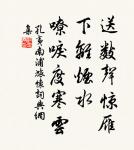 送數聲驚雁
下離煙水
嘹唳度寒雲
孔夷南浦旅懷詞典網
集